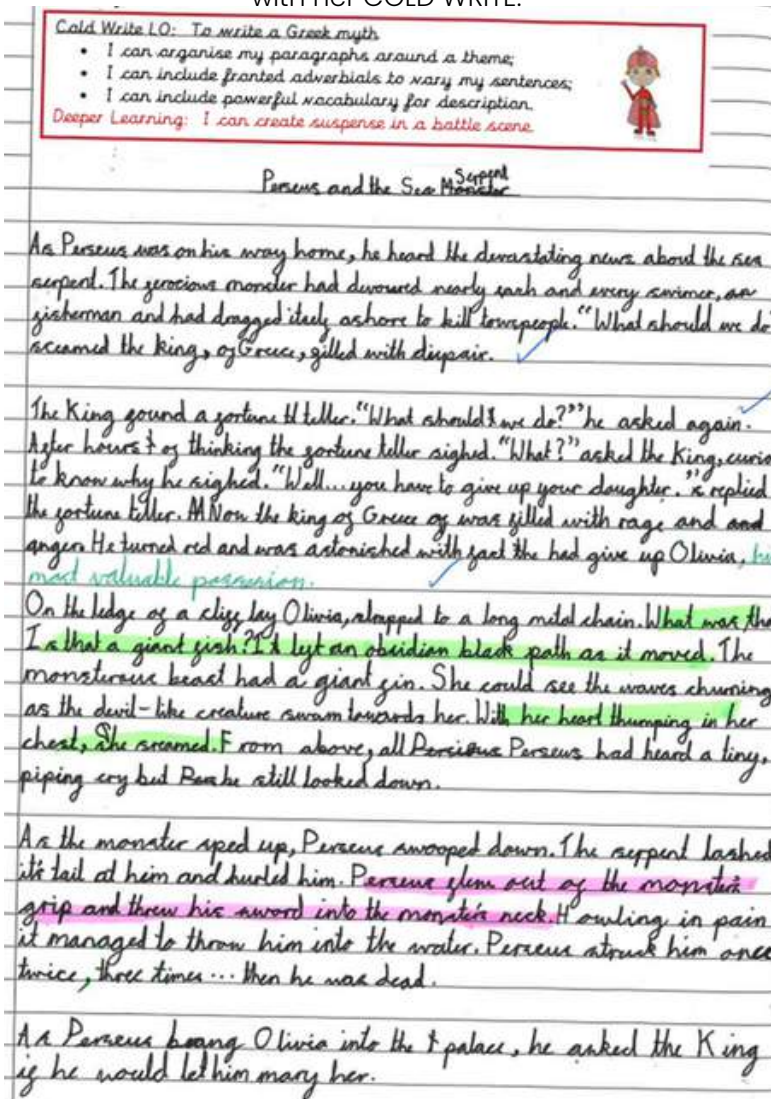 with her COLD WRITE.
Cold Write LO: To write a Greek myth
• I can organise my paragraphs around a theme;
• I can include fronted adverbials to vary my sentences;
• I can include powerful vocabulary for description.
Deeper Learning: I can create suspense in a battle scene
Perseus and the Sea Serpent
As Perseus was on his way home, he heard the devastating news about the sea
serpent. The ferocious monster had devoured nearly each and every swimer, an
fisherman and had dragged itself ashore to kill towspeople. "What should we do
screamed the king, of Greece, filled with dispair.
The King found a fortune teller. "What should we do?" he asked again.
After hours of thinking the fortune teller sighed. "What?" asked the King, curio
to know why he sighed. "Well... you have to give up your daughter." replied
the fortune teller. Now the king of Greece was filled with rage and
anger. He turned red and was astonished with fact the had give up Olivia, hi
most valuable possesion.
On the ledge of a cliff lay Olivia, strapped to a long metal chain. What was tha
Is that a giant fish? It left an obsidian black path as it moved. The
monsterous beast had a giant fin. She could see the waves churning
as the devil-like creature swam towards her. With her heart thumping in her
chest, She screamed. From above, all Perseus had heard a tiny,
piping cry but he still looked down.
As the monster sped up, Perseus swooped down. The serppent lashed
it's tail at him and hurled him. Perseus flew out of the monster's
grip and threw his sword into the monster's neck. Howling in pain
it managed to throw him into the water. Perseus struck him once
twice, three times... then he was dead.
As Perseus brang Olivia into the palace, he asked the King
if he would let him mary her.